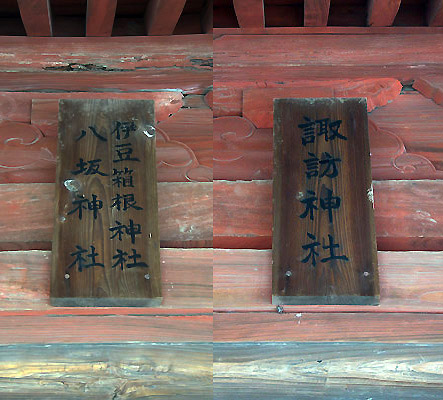 伊豆箱根神社
八坂神社
諏訪神社